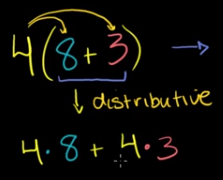 4(8+3)
distributive
4·8+4·3